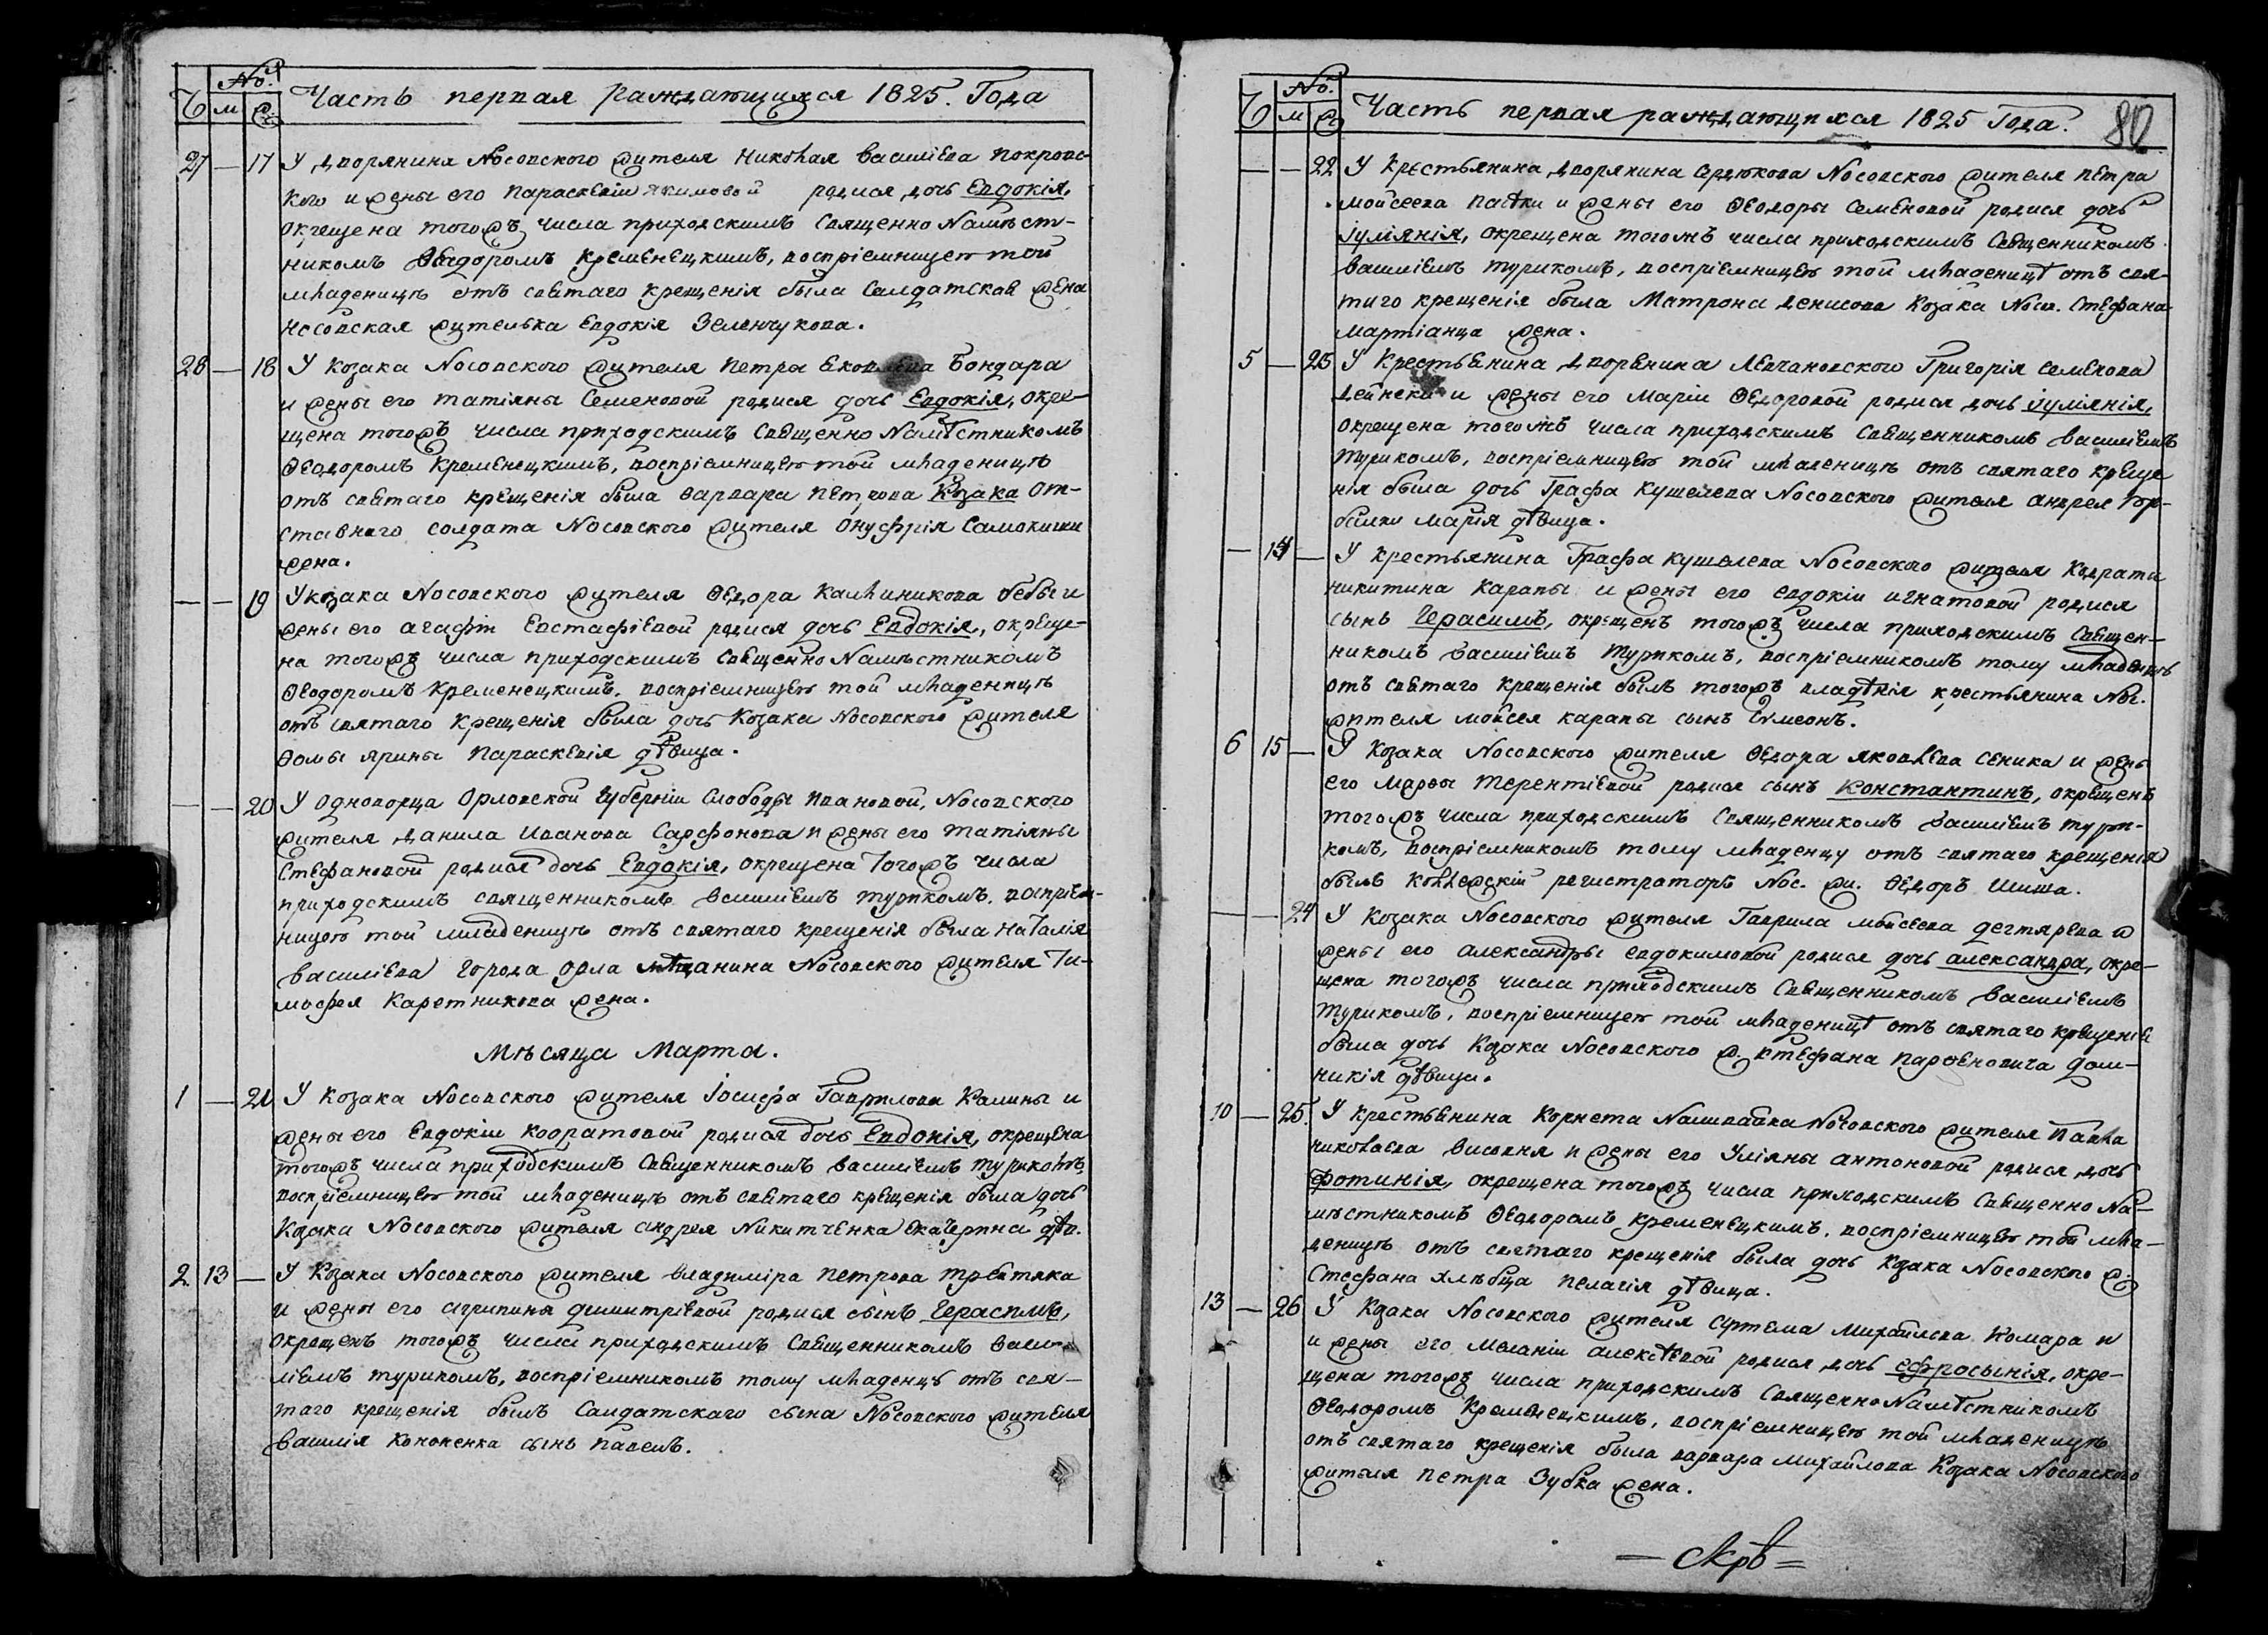 №.
Ч м ж Часть первая раждающихся 1825. Года
27 — 17 У дворянина Носовского жителя Николая Василіева Покровс-
кого и жены его Параскевіи Якимовой родися дочь Евдокія,
окрещена тогожъ числа приходскимъ Священно Намѣст-
никомъ Феодоромъ Кременецкимъ, воспріемницею той
младеницѣ отъ святаго крещенія была Салдатская жена
Носовская жителька Евдокія Зеленчукова.
28 — 18 У Козака Носовского жителя Петра Бондара
и жены его Татіяны Семеновой родися дочь Евдокія, окре-
щена тогожъ числа приходскимъ Священно Намѣстникомъ
Феодоромъ Кременецкимъ, воспріемницею той младеницѣ
отъ святаго крещенія была Варвара Петрова Козака от-
ставнаго солдата Носовского жителя Онуфрія Самокиши
жена.
— — 19 У козака Носовского жителя Федора Каллиникова Бебы и
жены его Агафіи Евстафіевой родися дочь Евдокія, окреще-
на тогожъ числа приходскимъ Священно Намѣстникомъ
Феодоромъ Кременецкимъ. воспріемницею той младеницѣ
отъ святаго крещенія была дочь Козака Носовского жителя
Фомы Ярины Параскевія дѣвица.
— — 20 У Однодворца Орловской Губерніи Слободы Ивановой, Носовского
жителя Данила Иванова Сарафонова и жены его Татіяны
Стефановой родися дочь Евдокія, окрещена тогожъ числа
приходскимъ священникомъ Василіемъ Туриком. воспріем-
ницею той младеницѣ отъ святаго крещенія была Наталія
Василіева города Орла мѣщанина Носовского жителя Ти-
мофея Каретникова жена.
Мѣсяца Марта.
1 — 21 У Козака Носовского жителя Іосифа Гаврилова Калины и
жены его Евдокіи Кодратовой родися дочь Евдокія, окрещена
тогожъ числа приходскимъ Священникомъ Василіемъ Туриком,
воспріемницею той младеницѣ отъ святаго крещенія была дочь
Козака Носовского жителя Андрея Никитченка Екатерина дѣв.
2 13 — У Козака Носовского жителя Владиміра Петрова Третяка
и жены его Агрипины Димитріевой родися сынъ Герасимъ,
окрещенъ тогожъ числа приходскимъ Священникомъ Васи-
ліемъ Туриком, воспріемникомъ тому младенцу отъ свя-
таго крещенія былъ Салдатскаго сына Носовского жителя
Василія Кононенка сынъ Павелъ.
№.
Ч м ж Часть первая раждающихся 1825 Года. 80
— — 22 У Крестьянина дворянина Сердюкова Носовского жителя Петра
Мойсеева и жены его Феодоры Семеновой родися дочь
Іуліянія, окрещена тогожъ числа приходскимъ Священникомъ
Василіемъ Туриком, воспріемницею той младеницѣ отъ свя-
таго крещенія была Матрона Денисова Козака Носов. Стефана
Мартіанца жена.
5 — 23 У Крестьянина дворянина Левчановского Григорія Семенова
Дейнеки и жены его Маріи Федоровой родися дочь Іуліянія,
окрещена тогожъ числа приходскимъ Священникомъ Василіемъ
Туриком, воспріемницею той младеницѣ отъ святаго креще
нія была дочь Графа Кушелева Носовского жителя Андрея Гор-
билки Марія дѣвица.
— 14 — У крестьянина Графа Кушелева Носовского жителя Кодрата
Никитина Карапы и жены его Евдокіи Игнатовой родися
сынъ Герасимъ, окрещенъ тогожъ числа приходскимъ Священ-
никомъ Василіемъ Туриком, воспріемникомъ тому младенцу
отъ святаго крещенія былъ тогожъ владѣнія крестьянина Нос.
жителя Мойсея Карапы сынъ Сѵмеонъ.
6 15 — У Козака Носовского жителя Федора Яковлева Сеника и жены
его Марфы Терентіевой родися сынъ Константинъ, окрещенъ
тогожъ числа приходскимъ Священникомъ Василіемъ Тури-
комъ, воспріемникомъ тому младенцу отъ святаго крещенія
былъ Коллежскій регистраторъ Нос. жи. Федоръ Шиша.
— — 24 У Козака Носовского жителя Гаврила Мойсеева Дегтярева и
жены его Александры Евдокимовой родися дочь Александра, окре-
щена тогожъ числа приходскимъ Священникомъ Василіемъ
Туриком, воспріемницею той младеницѣ отъ святаго крещенія
была дочь Козака Носовского ж. Стефана Парфеновича Дом-
никія дѣвица.
10 — 25. У Крестьянина Корнета Носовского жителя Павла
Николаева и жены его Уліяны Антоновой родися дочь
Фотинія, окрещена тогожъ числа приходскимъ Священно На-
мѣстникомъ Феодоромъ Кременецкимъ, воспріемницею той мла-
деницѣ отъ святаго крещенія была дочь Козака Носовского ж.
Стефана Хлѣбца Пелагія дѣвица.
13 — 26 У Козака Носовского жителя Артема Михайлова Комара и
и жены его Меланіи Алексѣевой родися дочь Ефросинія, окре-
щена тогожъ числа приходскимъ Священно Намѣстникомъ
Феодоромъ Кременецкимъ, воспріемницею той младеницѣ
отъ святаго крещенія была Варвара Михайлова Козака Носовского
жителя Петра Зубка жена.